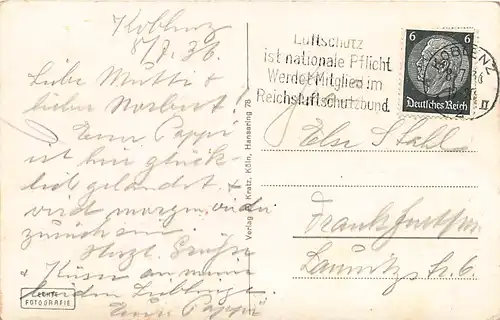 Koblenz
8/7.36
Liebe Mutti &
lieber Norbert!
Euer Pappi
ist hier glück-
lich gelandet &
wird morgen wieder
zurück sein
Herzl. Grüße
& Küsse an meine
beiden Lieblinge
Euer Pappi
ECHTE
FOTOGRAFIE
Verlag Kratz, Köln, Hansaring 78
Luftschutz
ist nationale Pflicht
Werdet Mitglied im
Reichsluftschutzbund
6 6
Deutsches Reich
KOBLENZ
II
Stahl
Frankfurt